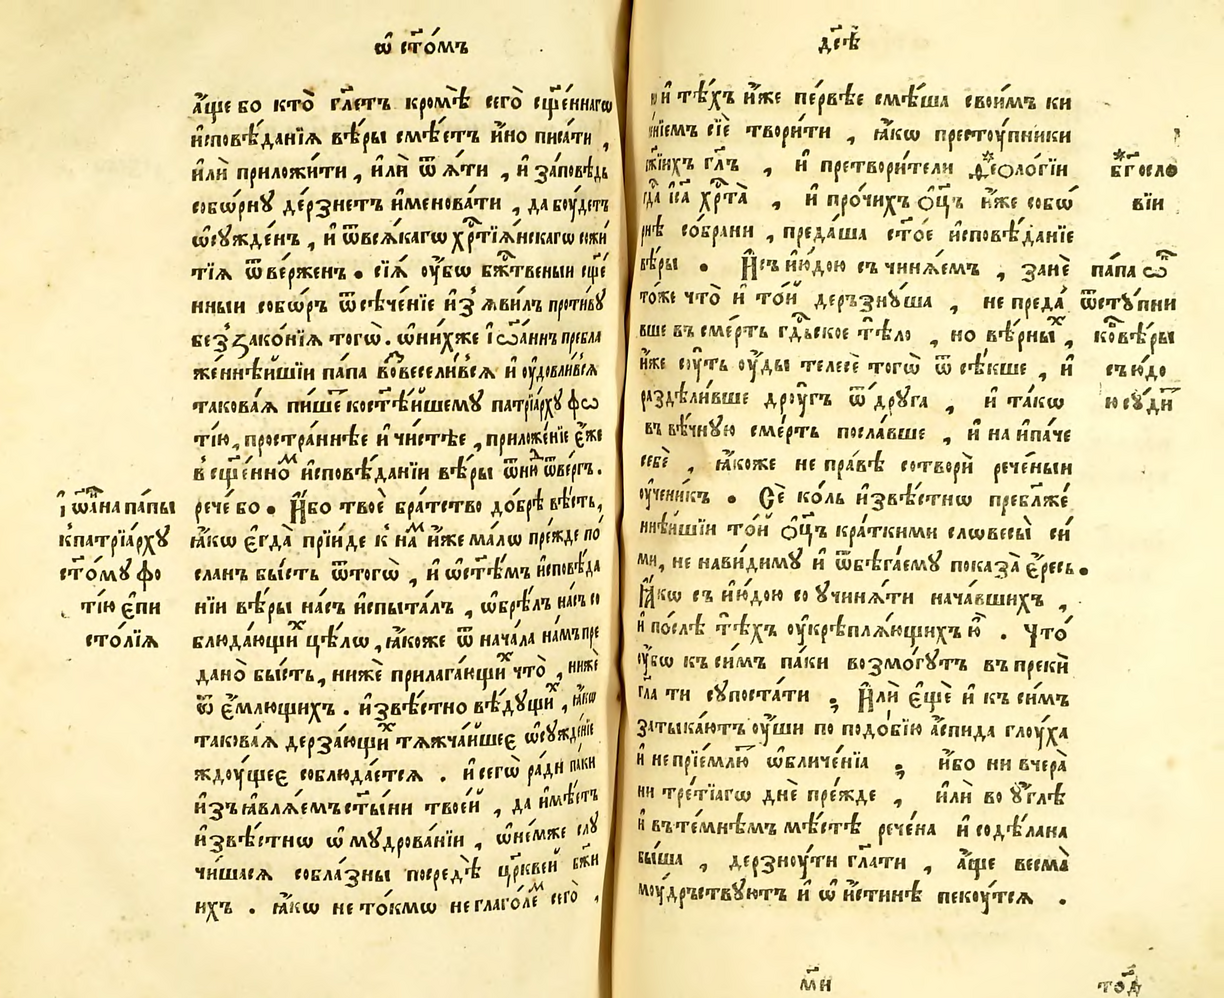 ѡ҆ ст҃о́мъ
а҆́ще бо кто̀ гл҃етъ кромѣ̀ сего̀ сщ҃е́ннагѡ
и҆сповѣ́данїѧ вѣ́ры смѣ́етъ и҆́но писа́ти ,
и҆лѝ приложи́ти , и҆лѝ ѿ ѧ҆́ти , и҆ за́повѣдь
собо́рнꙋ де́рзнетъ и҆менова́ти , да бꙋ́детъ
ѡ҆сꙋжде́нъ , и҆ ѿвсѧ́кагѡ хрⷭ҇тїѧ́нскагѡ сожи́
тїѧ ѿве́рженъ . сїѧ̀ ᲂу҆́бѡ бж҃твеныи сщ҃е́
нныи собѡ́ръ ѿсѣче́нїе и҆з̾ ѧ҆ви́лъ проти́вꙋ
без̾ зако́нїѧ тогѡ̀ . ѡ҆ни́хже і҆ѡа́ннъ пребла
же́ннѣйшїи па́па во́звесели́всѧ и҆ ᲂу҆довли́всѧ
такова́ѧ пи́шетъ костѣ́йшемꙋ патрїа́рхꙋ фѡ
ті́ю , простра́ннѣе и҆ чи́стѣе , приложе́нїе є҆́же
в̾ сщ҃е́нноⷨ и҆сповѣ́данїи вѣ́ры ѿни́хъ ѿве́рг̾ .
рече́ бо . И҆́бо твоѐ бра́тство до́брѣ вѣ́сть ,
і҆ѡа́на па́пы
ѧ҆́кѡ є҆гда̀ прїи́де к̾ наⷨ и҆́же ма́лѡ пре́жде по́
к̾патрїа́рхꙋ
сланъ бы́сть ѿтогѡ̀ , и҆ ѡ҆стѣ́мъ и҆сповѣ́да
ст҃о́мꙋ фо
нїи вѣ́ры на́съ и҆спыта́лъ , ѡ҆брѣ́лъ на́съ со
ті́ю є҆пи
блюда́ющиⷯ цѣ́лѡ , ѧ҆́коже ѿ нача́ла на́мъ пре
сто́лїѧ
дано̀ бы́сть , нижѐ прилага́ющиⷯ что̀ , нижѐ
ѿ є҆́млющихъ . и҆звѣ́стно вѣ́дꙋщиⷯ , ѧ҆́кѡ
такова́ѧ дерза́ющиⷯ тѧ́жчайшее ѡ҆сꙋжде́нїе
ждꙋ́щее соблюда́етсѧ . и҆ сегѡ̀ ра́ди па́ки
и҆зъꙗвлѧ́емъ ст҃ы́ни твое́й , да и҆мѣ́етъ
и҆звѣ́стнѡ ѡ҆ мꙋдрова́нїи , ѡ҆не́мже слꙋ
чи́шасѧ собла́зны посредѣ̀ цр҃кве́й бж҃и
ихъ . ѧ҆́кѡ не то́кмѡ не глаго́леⷨ сегѡ̀ ,
дѣѐ
и҆ тѣ́хъ и҆́же пе́рвѣе смѣ́ша свои́мъ ки
нїемъ сїѐ твори́ти , ѧ҆́кѡ престꙋ́пники
бж҃їихъ гл҃ъ , и҆ претвори́тели ѳеоло́гїи
бг҃осло
гдⷭ҇а і҆и҃са хрⷭ҇та̀ , и҆ про́чихъ ѻ҆ц҃ъ и҆́же собѡ́
вїи
рнѣ со́брани , преда́ша ст҃о́е и҆сповѣ́данїе
вѣ́ры . И҆съ и҆ю́дою съ чинѧ́емъ , занѐ
па́па ѡ҆
то́же что̀ и҆ то́й де́рзнꙋша , не преда́
ѿстꙋ́пни
вше въ сме́рть гдⷭ҇ьское тѣ́ло , но вѣ́рныⷯ ,
ко́въ вѣ́ры
и҆́же сꙋ́ть ᲂу҆́ды телесѐ тогѡ̀ ѿ сѣ́кше , и҆
съ ю́до
раздѣли́вше дрꙋ́гъ ѿ дрꙋ́га , и҆ та́кѡ
ю сꙋ́дитъ
въ вѣ́чнꙋю сме́рть посла́вше , и҆ наипа́че
себѐ , ѧ҆́коже не пра́вѣ сотворѝ рече́ныи
ᲂу҆чени́къ . Сѐ ко́ль и҆звѣ́стнѡ преблаже́
ннѣ́йшїи то́й ѻ҆ц҃ъ кра́ткими слѡвесы̀ си́
ми , не нави́димꙋ и҆ ѿбѣга́емꙋ показа̀ є҆́ресь .
Ѧ҆́кѡ съ и҆ю́дою со ᲂу҆чинѧ́ти нача́вшихъ ,
и҆ по́слѣ тѣ́хъ ᲂу҆крѣплѧ́ющихъ ю҆̀ . Что́
ᲂу҆́бѡ къ си́мъ па́ки возмо́гꙋтъ въ преки́
гл҃а ти сꙋпоста́ти ; И҆лѝ є҆щѐ и҆ къ си́мъ
затыка́ютъ ᲂу҆́ши по подо́бїю а҆́спида глꙋ́ха
и҆ не прїе́млютъ ѡ҆бличе́нїа ; и҆́бо ни вчера̀
ни тре́тїагѡ днѐ пре́жде , и҆лѝ во ᲂу҆́глѣ
и҆ въ те́мнѣмъ мѣ́стѣ рече́на и҆ содѣ́лана
бы́ша , дерзнꙋ́ти гл҃ати , а҆́ще весма̀
мꙋ́дръствꙋютъ и҆ ѡ҆ и҆́стинѣ пекꙋ́тсѧ .
м҃и
тоⷣ